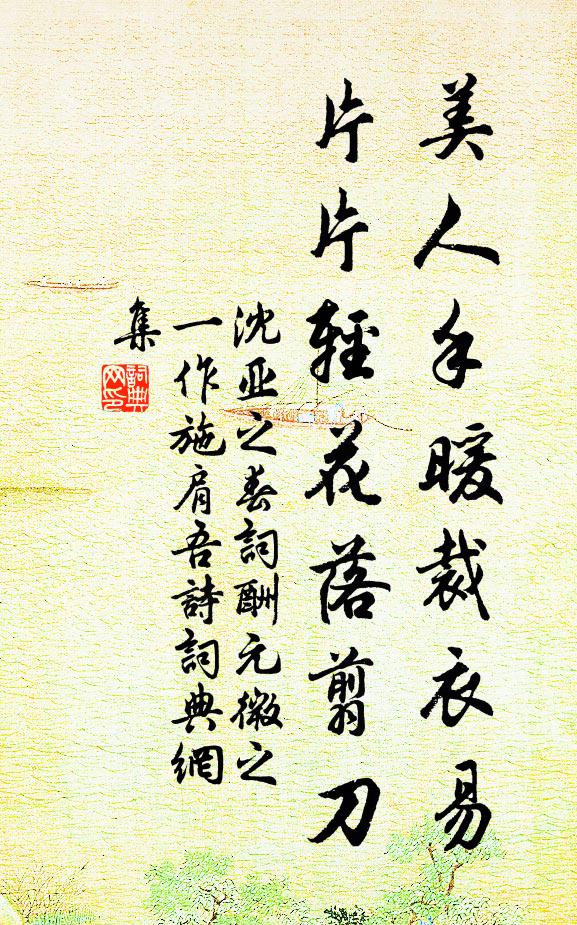 美人手暖裁衣易
片片輕花落剪刀
沈亚之春詞酬元微之
一作施肩吾詩詞典網
集
詞典
网印